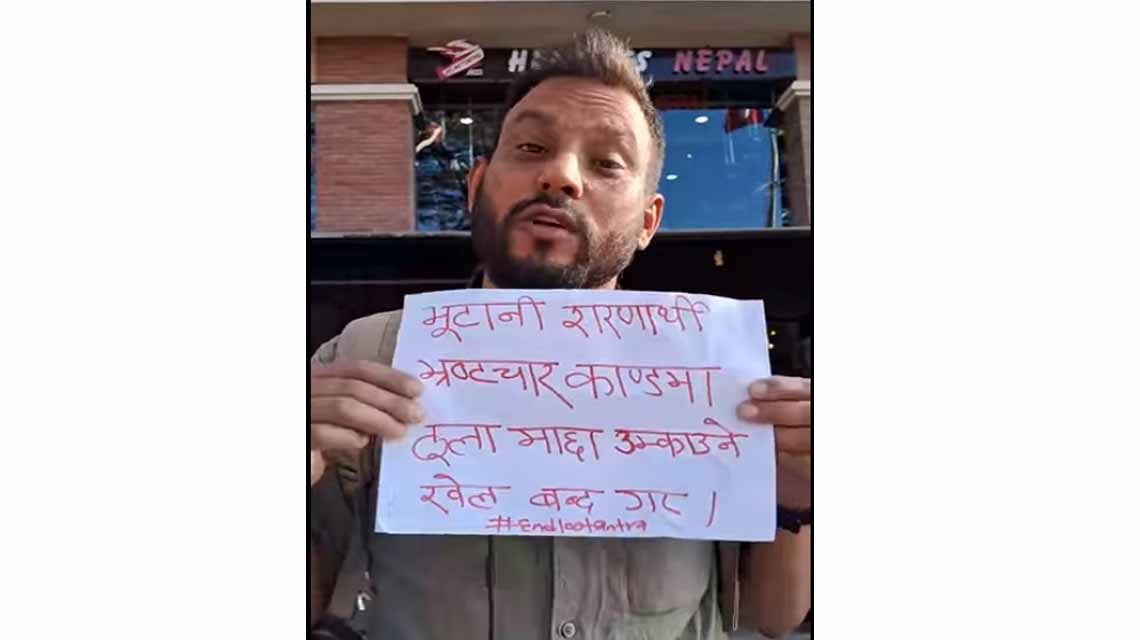 NEPAL
भूटानी शरणार्थी
भ्रष्टचार काण्डमा
ठूला माछा उम्काउने
खेल बन्द गर ।
#Endlootantra